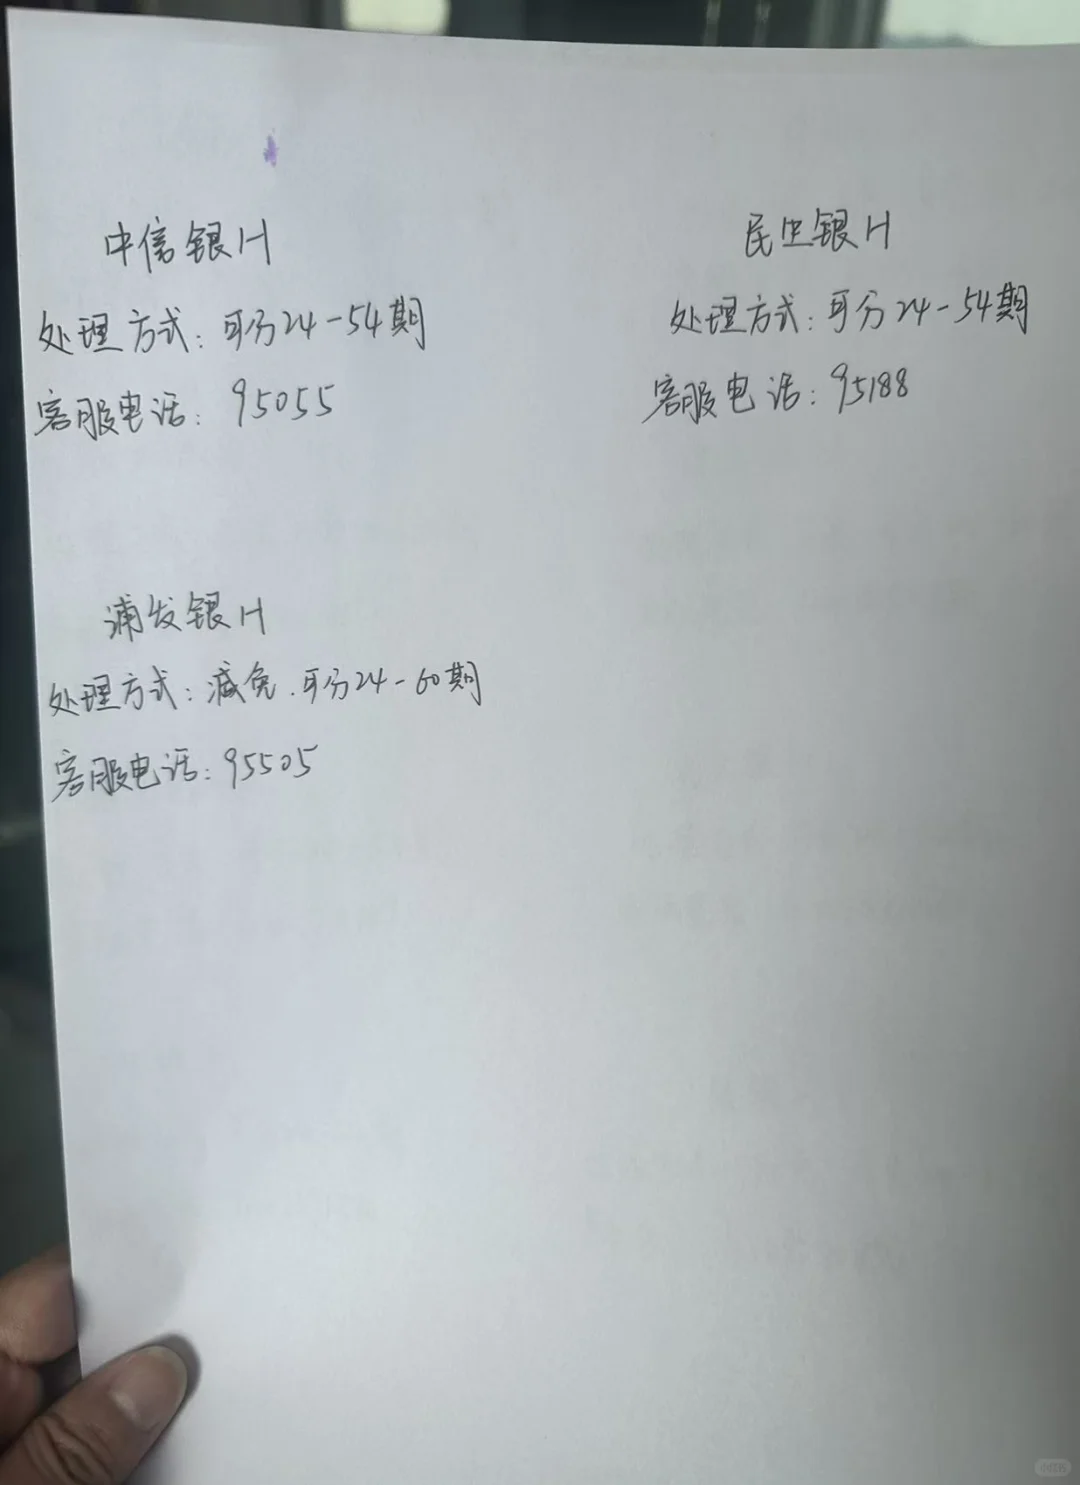 中信银行
处理方式：可分24-54期
客服电话：95055
民生银行
处理方式：可分24-54期
客服电话：95188
浦发银行
处理方式：减免.可分24-60期
客服电话：95505
小红书